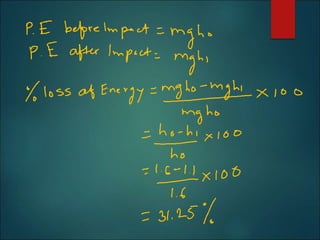 P.E before Impact = mgh₀
P.E after Impact = mgh₁
% loss of Energy = mgh₀-mgh₁ × 100
mgh₀
= h₀-h₁ × 100
h₀
= 1.6-1.1 × 100
1.6
= 31.25 %